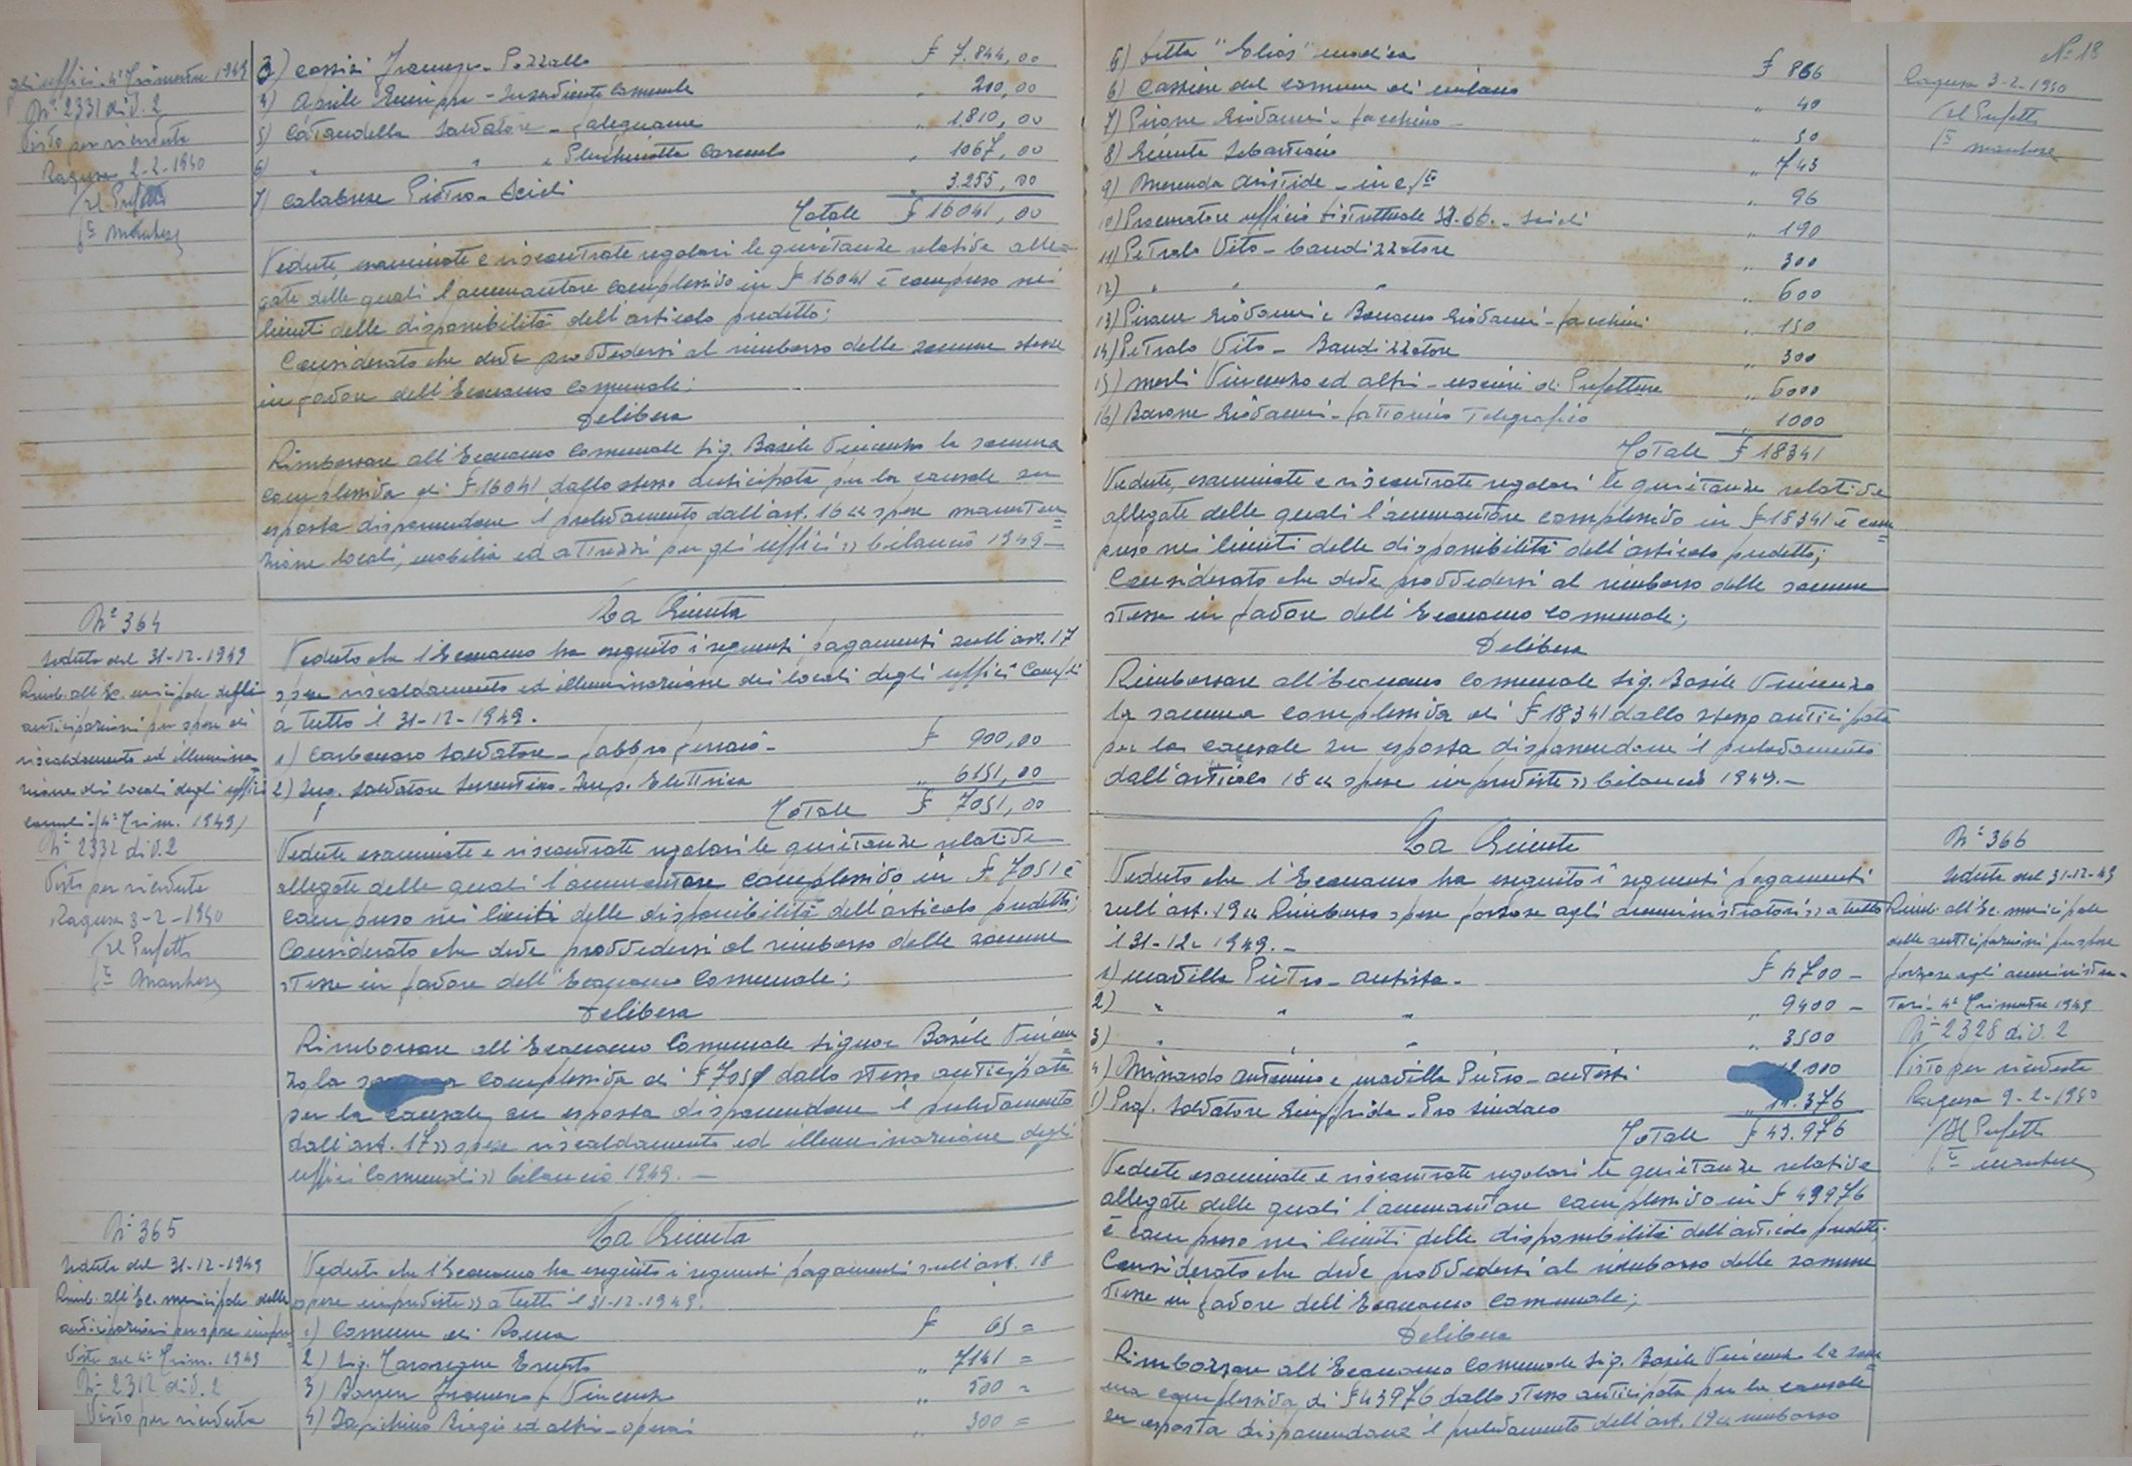 gli uffici - 4° Trimestre 1949
N° 2331 div. 2
Visto per ricevuta
Ragusa 2-2-1950
Il Prefetto
f.to Marchese
3) Cassisi Francesco - Pozzallo £ 7.844,00
4) Aprile Giuseppe - Inserviente Comunale " 200,00
5) Cataudella Salvatore - falegname " 1.810,00
6) " " e Pluchinotta Carmelo " 1067,00
7) Calabrese Pietro - Scicli " 3.255,00
Totale £ 16041,00
Vedute, esaminate e riscontrate regolari le quietanze relative alle=
gate delle quali l'ammontare complessivo in £ 16041 è compreso nei
limiti delle disponibilità dell'articolo predetto;
Considerato che deve provvedersi al rimborso delle somme stesse
in favore dell'Economo Comunale;
Delibera
Rimborsare all'Economo Comunale Sig. Basile Vincenzo la somma
complessiva di £ 16041 dallo stesso anticipata per la causale su
esposta disponendone il prelevamento dall'art. 16 « spese manuten=
zione locali, mobilia ed attrezzi per gli uffici » bilancio 1949 -
N° 364
Seduta del 31-12-1949
Rimb. all'Ec. municipale delle
anticipazioni per spese di
riscaldamento ed illumina=
zione dei locali degli uffici
comunali - (4° Trim. 1949)
N° 2332 div. 2
Visto per ricevuta
Ragusa 3-2-1950
Il Prefetto
f.to Marchese
La Giunta
Veduto che l'Economo ha eseguito i seguenti pagamenti sull'art. 17
spese riscaldamento ed illuminazione dei locali degli uffici Com/li
a tutto il 31-12-1949.
1) Carbonaro Salvatore - fabbro ferraio - £ 900,00
2) Ing. Salvatore Sorrentino - Imp. Elettrica " 6151,00
Totale £ 7051,00
Vedute esaminate e riscontrate regolari le quietanze relative
allegate delle quali l'ammontare complessivo in £ 7051 è
compreso nei limiti delle disponibilità dell'articolo predetto;
Considerato che deve provvedersi al rimborso delle somme
stesse in favore dell'Economo Comunale;
Delibera
Rimborsare all'Economo Comunale Signor Basile Vincen=
zo la somma complessiva di £ 7051 dallo stesso anticipata
per la causale su esposta disponendone il prelevamento
dall'art. 17 » spese riscaldamento ed illuminazione degli
uffici Comunali » bilancio 1949. -
N° 365
Seduta del 31-12-1949
Rimb. all'Ec. municipale delle
anticipazioni per spese impre=
viste del 4° Trim. 1949
N° 2312 div. 2
Visto per ricevuta
La Giunta
Veduto che l'Economo ha eseguito i seguenti pagamenti sull'art. 18
spese impreviste » a tutto il 31-12-1949.
1) Comune di Roma £ 65 =
2) Sig. Ernesto " 7141 =
3) Francesco Vincenzo " 500 =
4) Zapichino Biagio ed altri - operai " 300 =
N° 18
5) Ditta "Elios" Modica £ 866
6) Cassiere del Comune di Milano " 40
7) Pisone Giovanni - facchino - " 50
8) Giunta Sebastiano " 743
9) Merenda Aristide - in c/to " 96
10) Procuratore ufficio distrettuale II.DD. - Scicli " 190
11) Petralo Vito - Banditore " 300
12) " " " " 600
13) Pisone Giovanni e Bonomo Giovanni - facchini " 150
14) Petralo Vito - Banditore " 300
15) Merli Vincenzo ed altri - uscieri di Prefettura " 6000
16) Barone Giovanni - fattorino Telegrafico " 1000
Totale £ 18341
Ragusa 3-2-1950
Il Prefetto
f.to Marchese
Vedute, esaminate e riscontrate regolari le quietanze relative
allegate delle quali l'ammontare complessivo in £ 18341 è com=
preso nei limiti delle disponibilità dell'articolo predetto;
Considerato che deve provvedersi al rimborso delle somme
stesse in favore dell'Economo Comunale;
Delibera
Rimborsare all'Economo Comunale Sig. Basile Vincenzo
la somma complessiva di £ 18341 dallo stesso anticipata
per la causale su esposta disponendone il prelevamento
dall'articolo 18 « spese impreviste » bilancio 1949. -
La Giunta
Veduto che l'Economo ha eseguito i seguenti pagamenti
sull'art. 19 « Rimborso spese forzose agli amministratori » a tutto
il 31-12-1949. -
1) Mavilla Pietro - autista - £ 4700 -
2) " " " " 9400 -
3) " " " " 3500
4) Minardo Antonino e Mavilla Pietro - autisti .000
5) Prof. Salvatore Giuffrida - Pro Sindaco " 11.376
Totale £ 43.976
N° 366
Seduta del 31-12-49
Rimb. all'Ec. municipale
delle anticipazioni per spese
forzose agli amministra=
tori - 4° Trimestre 1949
N° 2328 div. 2
Visto per ricevuta
Ragusa 9-2-1950
Il Prefetto
f.to Marchese
Vedute esaminate e riscontrate regolari le quietanze relative
allegate delle quali l'ammontare complessivo in £ 43976
è compreso nei limiti delle disponibilità dell'articolo predetto.
Considerato che deve provvedersi al rimborso delle somme
stesse in favore dell'Economo Comunale;
Delibera
Rimborsare all'Economo Comunale Sig. Basile Vincenzo la som=
ma complessiva di £ 43976 dallo stesso anticipata per la causale
su esposta disponendone il prelevamento dell'art. 19 « rimborso